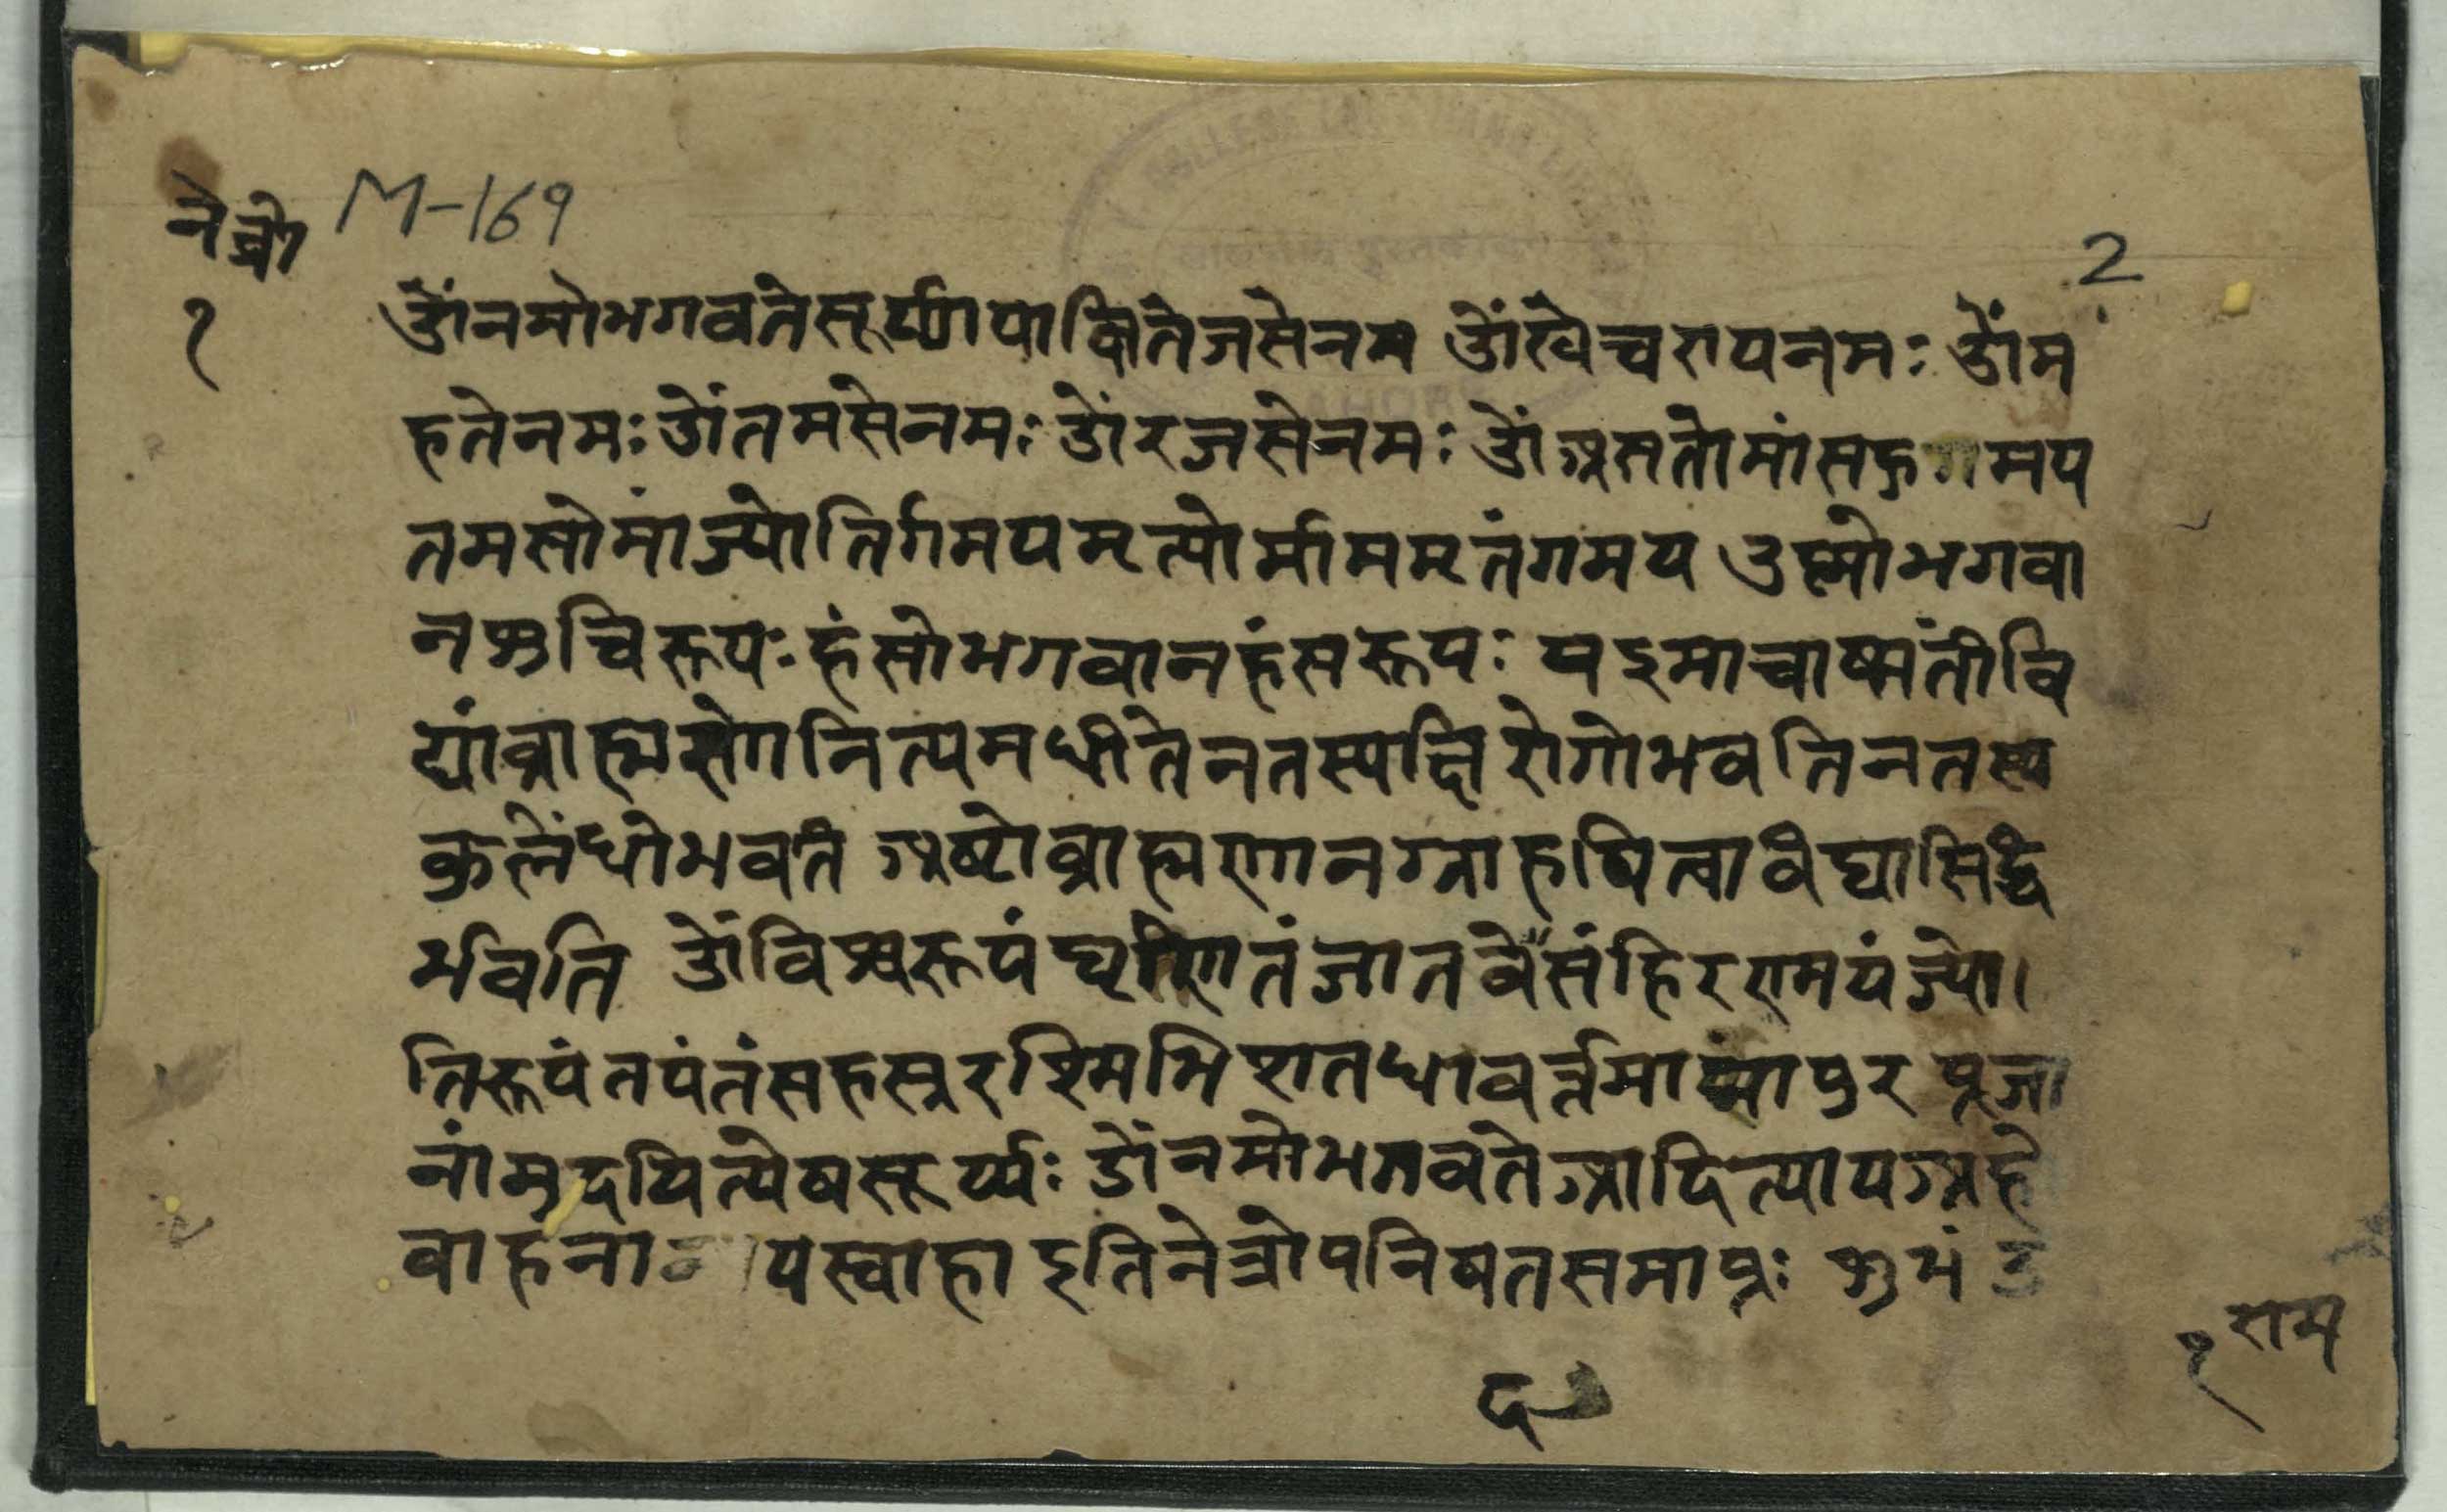 नेत्रो M-169
2
१
ॐनमोभगवतेसूर्य्यायाक्षितेजसेनम ॐखेचरायनमः ॐम
हतेनमः ॐतमसेनमः ॐरजसेनमः ॐअसतोमांसद्गमय
तमसोमांज्योतिर्गमयमृत्योर्मामम्रतंगमय उष्मोभगवा
नशुचिरूपः हंसोभगवानहंसरूपः यइमाचाष्मंतीवि
द्यांब्राह्मणोनित्यमधीतेनतस्याक्षिरोगोभवतिनतस्य
कुलेंधोभवति अष्टोब्राह्मणानग्राहयित्वाविद्यासिद्धि
र्भवति ॐविश्वरूपंघृणितंजातवेसंहिरण्मयंज्यो।
तिरूपंतपंतंसहस्ररश्मिभिशतधावर्त्तमा पुर प्रजा
नांमुदयित्येषसूर्य्यः ॐनमोभगवतेआदित्यायअहे
वाहना यस्वाहा इतिनेत्रोपनिषतसमाप्तः शुभं
१ राम